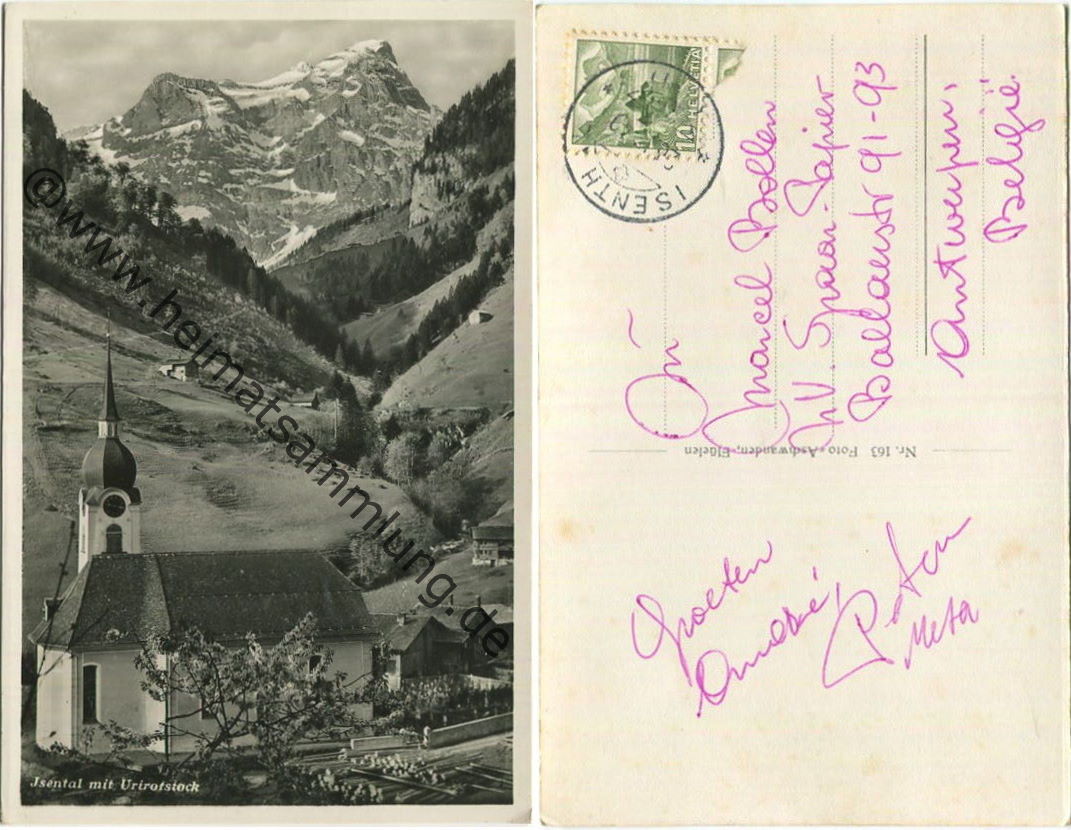 Jsental mit Urirotstock
© www.heimatsammlung.de
HELVETIA
10
ISENTH
An
Marcel Bollen
NV. Spaar-Papier
Ballaerstr 91-93
Antwerpen,
België.
Nr. 163 Foto Aschwanden, Flüelen
Groeten
Meta